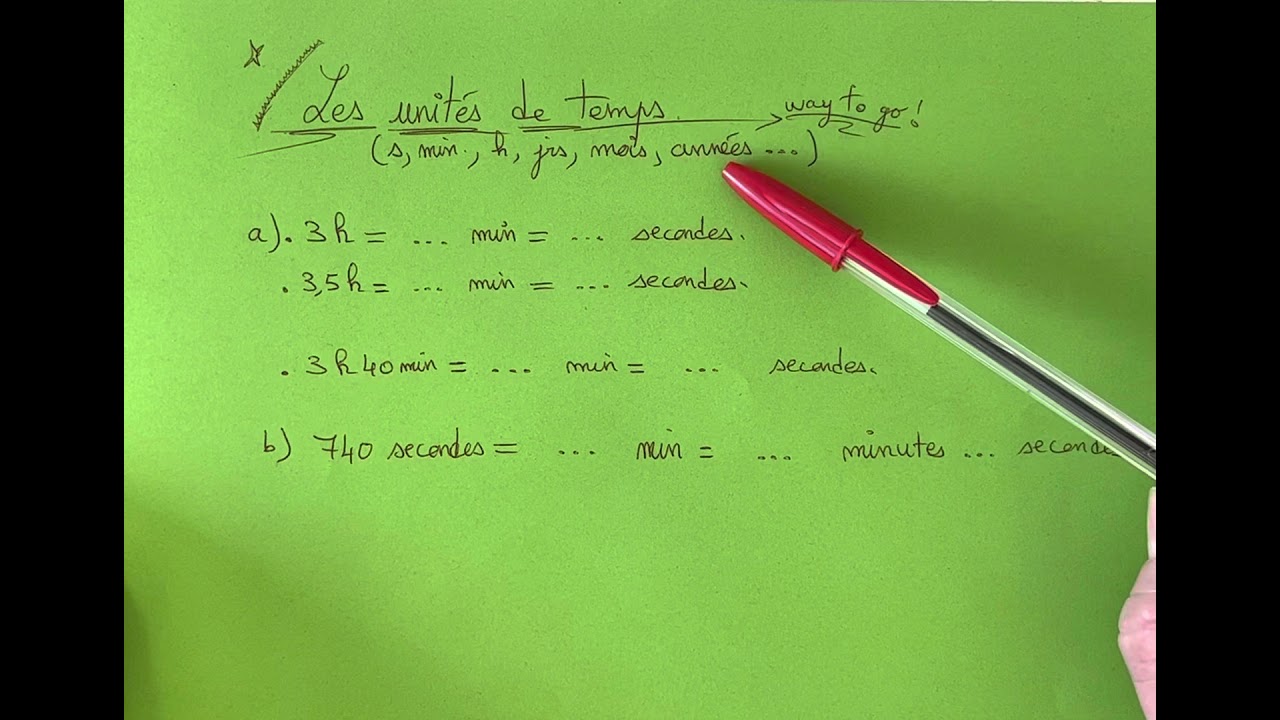 Les unités de temps. way to go!
(s, min., h, jrs, mois, années ...)
a). 3h = ... min = ... secondes.
. 3,5h = ... min = ... secondes.
. 3h40min = ... min = ... secondes.
b) 740 secondes = ... min = ... minutes ... seconde